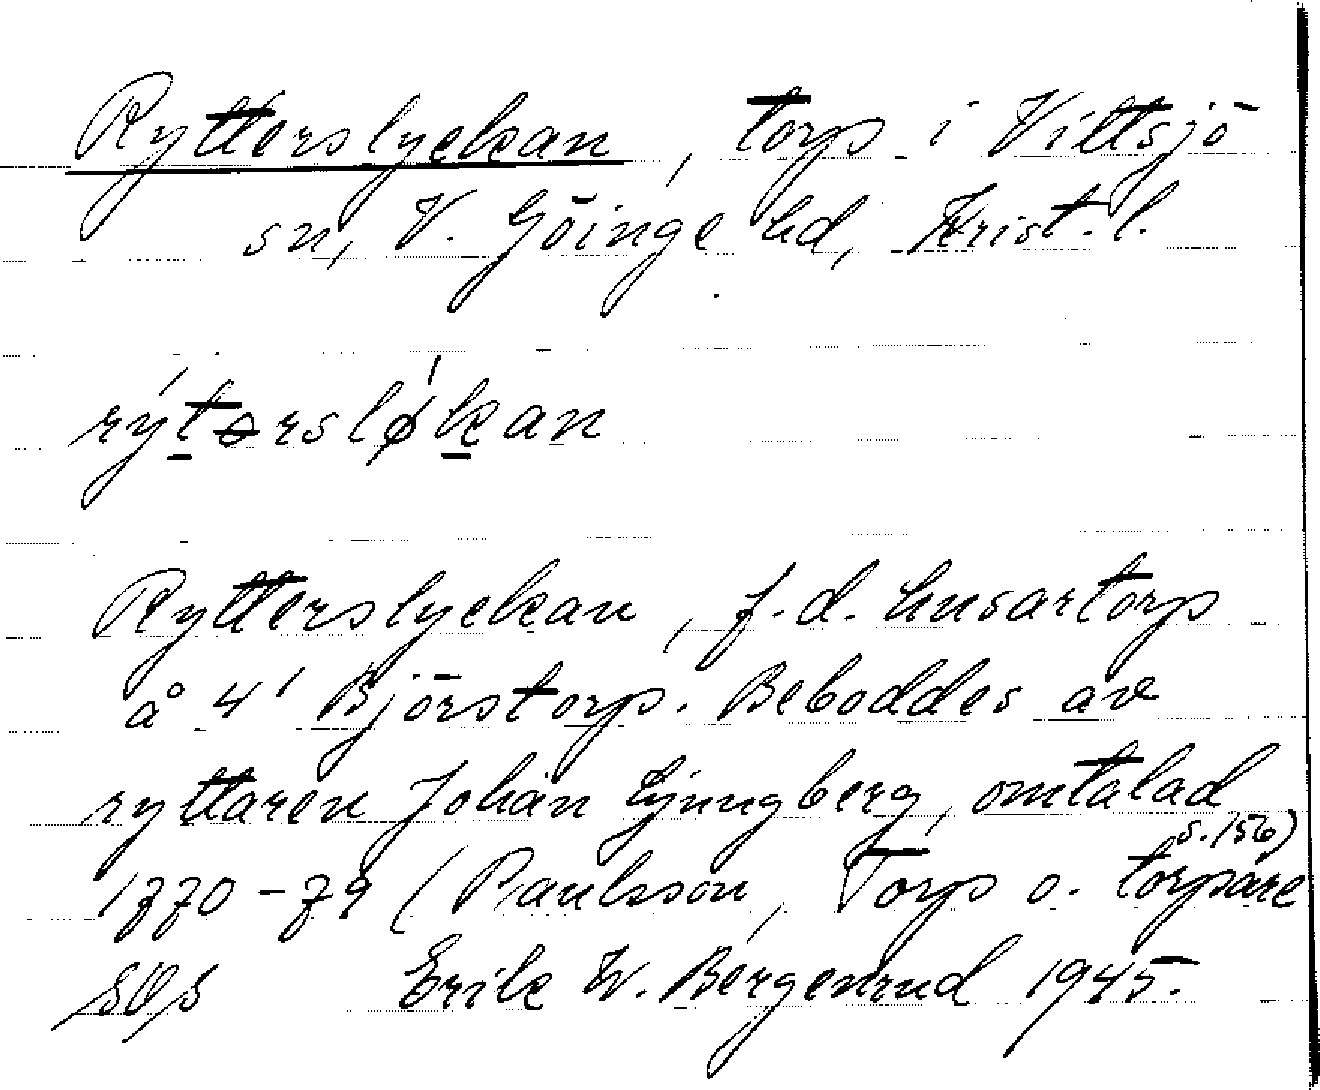 Rytterslyckan, torp i Vittsjö
sn, V. Göinge hd, Krist. l.
rýtərslǿkan
Rytterslyckan, f.d. husartorp
å 4' Björstorp. Beboddes av
ryttaren Johan Ljungberg, omtalad
1770-79 (Paulsson, Torp o. torpare s. 156)
Erik W. Bergenrud 1945.